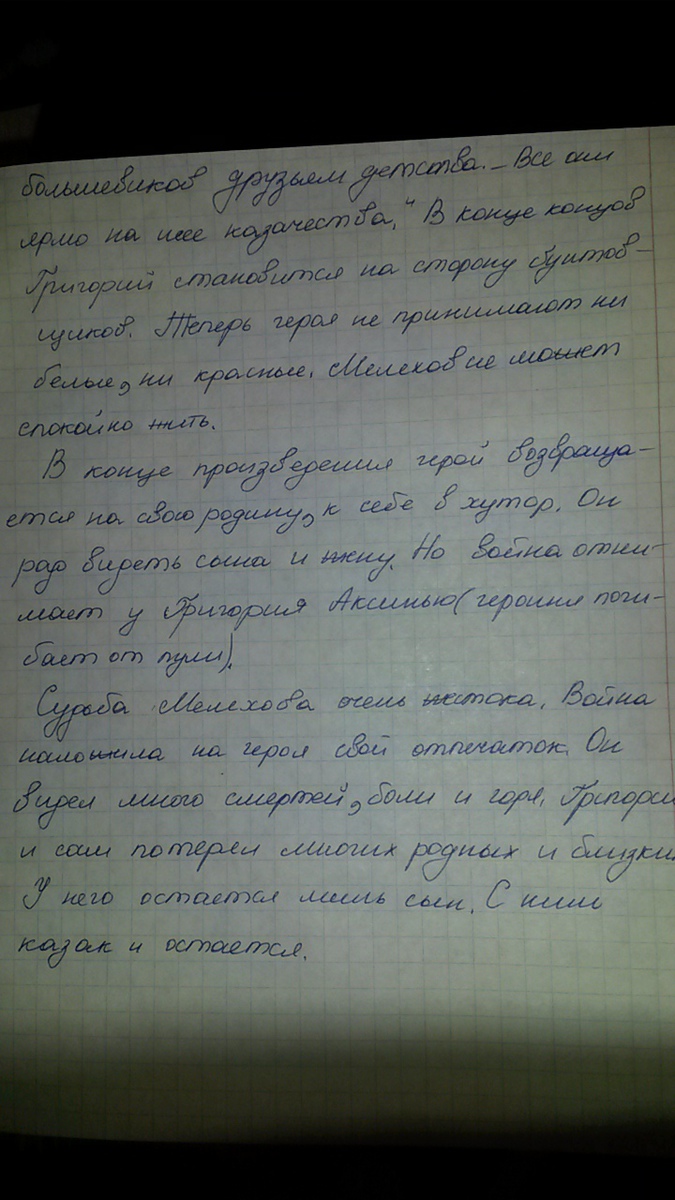 большевиков друзьям детства. – Все они
ярмо на шее казачества." В конце концов
Григорий становится на сторону бунтов-
щиков. Теперь героя не принимают ни
белые, ни красные. Мелехов не может
спокойно жить.
В конце произведения герой возвраща-
ется на свою родину, к себе в хутор. Он
рад видеть сына и жну. Но война отни-
мает у Григория Аксинью (героиня поги-
бает от пули).
Судьба Мелехова очень жстока. Война
наложила на героя свой отпечаток. Он
видел много смертей, боли и горя. Григорий
и сам потерял многих родных и близких
У него остается лишь сын. С ним
казак и остается.